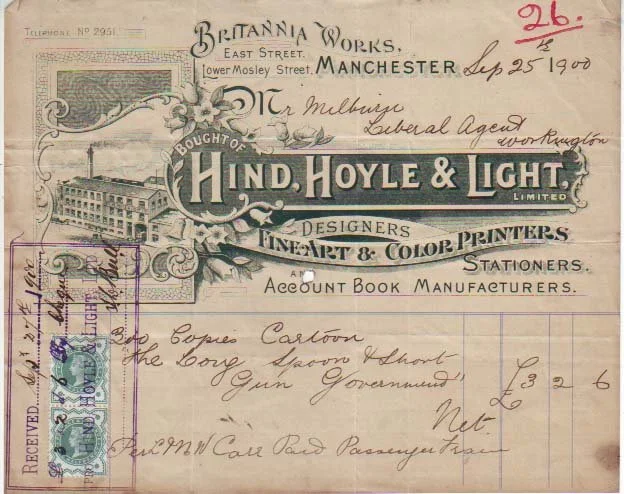 TELEPHONE No 2951.
26.
BRITANNIA WORKS,
EAST STREET.
Lower Mosley Street, MANCHESTER Sep 25th 1900
Mr Milburn
Liberal Agent
Workington
BOUGHT OF
HIND, HOYLE & LIGHT,
LIMITED
DESIGNERS
FINE-ART & COLOR PRINTERS
STATIONERS.
AND
ACCOUNT BOOK MANUFACTURERS.
300 Copies Cartoon
The Long Spoon & Short
Gun Government" £3 2 6
Net
Per L&NW Carr Paid Passenger Train
RECEIVED Sept 27th 1900
£3 2 6 By Cheque
PRO HIND HOYLE & LIGHT, LTD